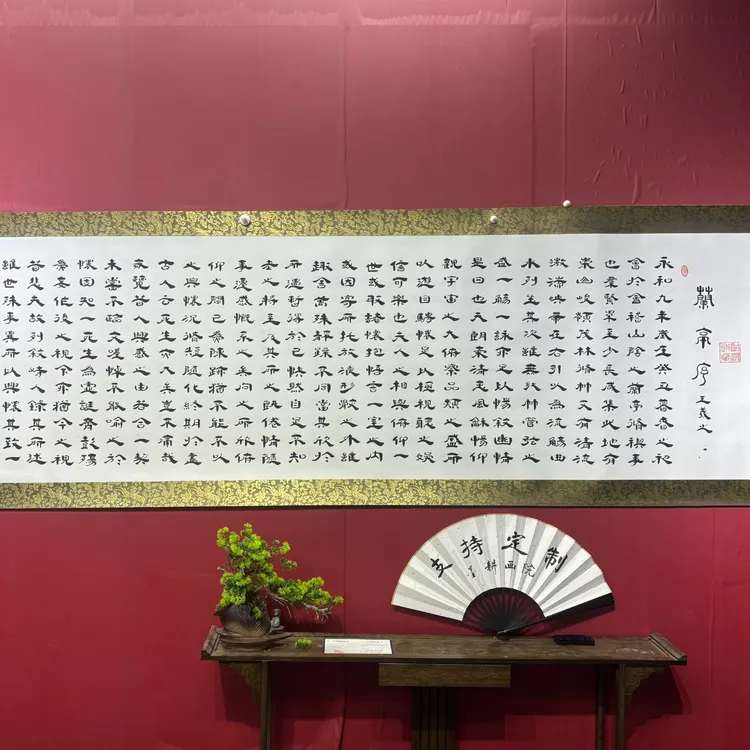 蘭亭序 王羲之
永和九年歲在癸丑暮春之初
會於會稽山陰之蘭亭脩禊事
也羣賢畢至少長咸集此地有
崇山峻領茂林脩竹又有清流
激湍映帶左右引以為流觴曲
水列坐其次雖無絲竹管弦之
盛一觴一詠亦足以暢敘幽情
是日也天朗氣清惠風和暢仰
觀宇宙之大俯察品類之盛所
以遊目騁懷足以極視聽之娛
信可樂也夫人之相與俯仰一
世或取諸懷抱悟言一室之內
或因寄所託放浪形骸之外雖
趣舍萬殊靜躁不同當其欣於
所遇暫得於己快然自足不知
老之將至及其所之既倦情隨
事遷感慨係之矣向之所欣俯
仰之間已為陳跡猶不能不以
之興懷況脩短隨化終期於盡
古人云死生亦大矣豈不痛哉
每覽昔人興感之由若合一契
未嘗不臨文嗟悼不能喻之於
懷固知一死生為虛誕齊彭殤
為妄作後之視今亦猶今之視
昔悲夫故列敘時人錄其所述
雖世殊事異所以興懷其致一
支持定制
墨耕画院